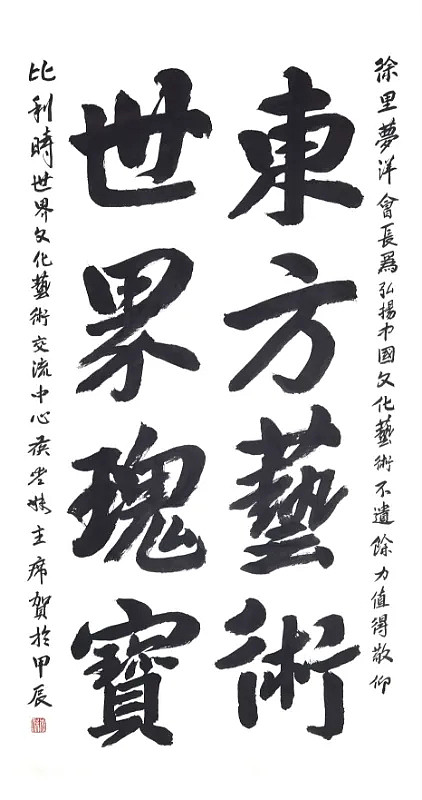 徐里夢洋會長爲弘揚中國文化藝術不遺餘力值得敬仰
東方藝術
世界瑰寶
比利時世界文化藝術交流中心主席賀於甲辰